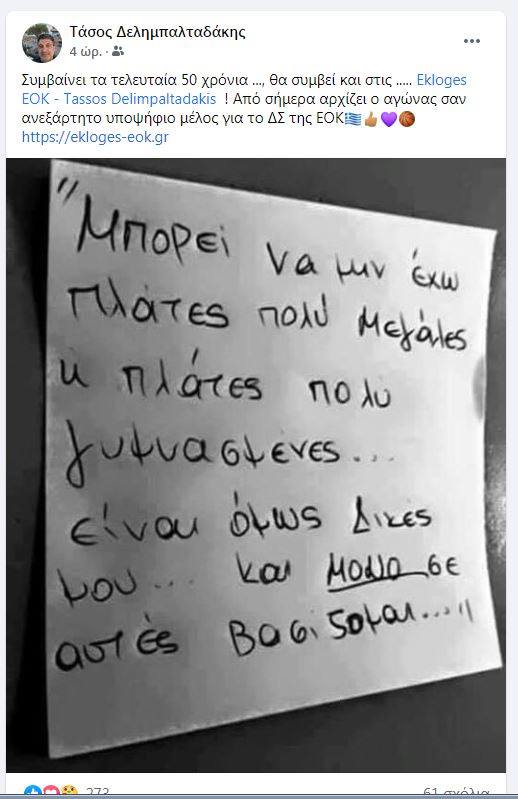 Τάσος Δελημπαλταδάκης
4 ώρ. ·
Συμβαίνει τα τελευταία 50 χρόνια ..., θα συμβεί και στις ..... Ekloges
EOK - Tassos Delimpaltadakis ! Από σήμερα αρχίζει ο αγώνας σαν
ανεξάρτητο υποψήφιο μέλος για το ΔΣ της ΕΟΚ🇬🇷👍🏽💜🏀
https://ekloges-eok.gr
"Μπορεί να μην έχω
πλάτες πολύ μεγάλες
κ πλάτες πολύ
γυμνασμένες...
είναι όμως δικές
μου... και μόνο σε
αυτές βασίζομαι..."
273
61 σχόλια